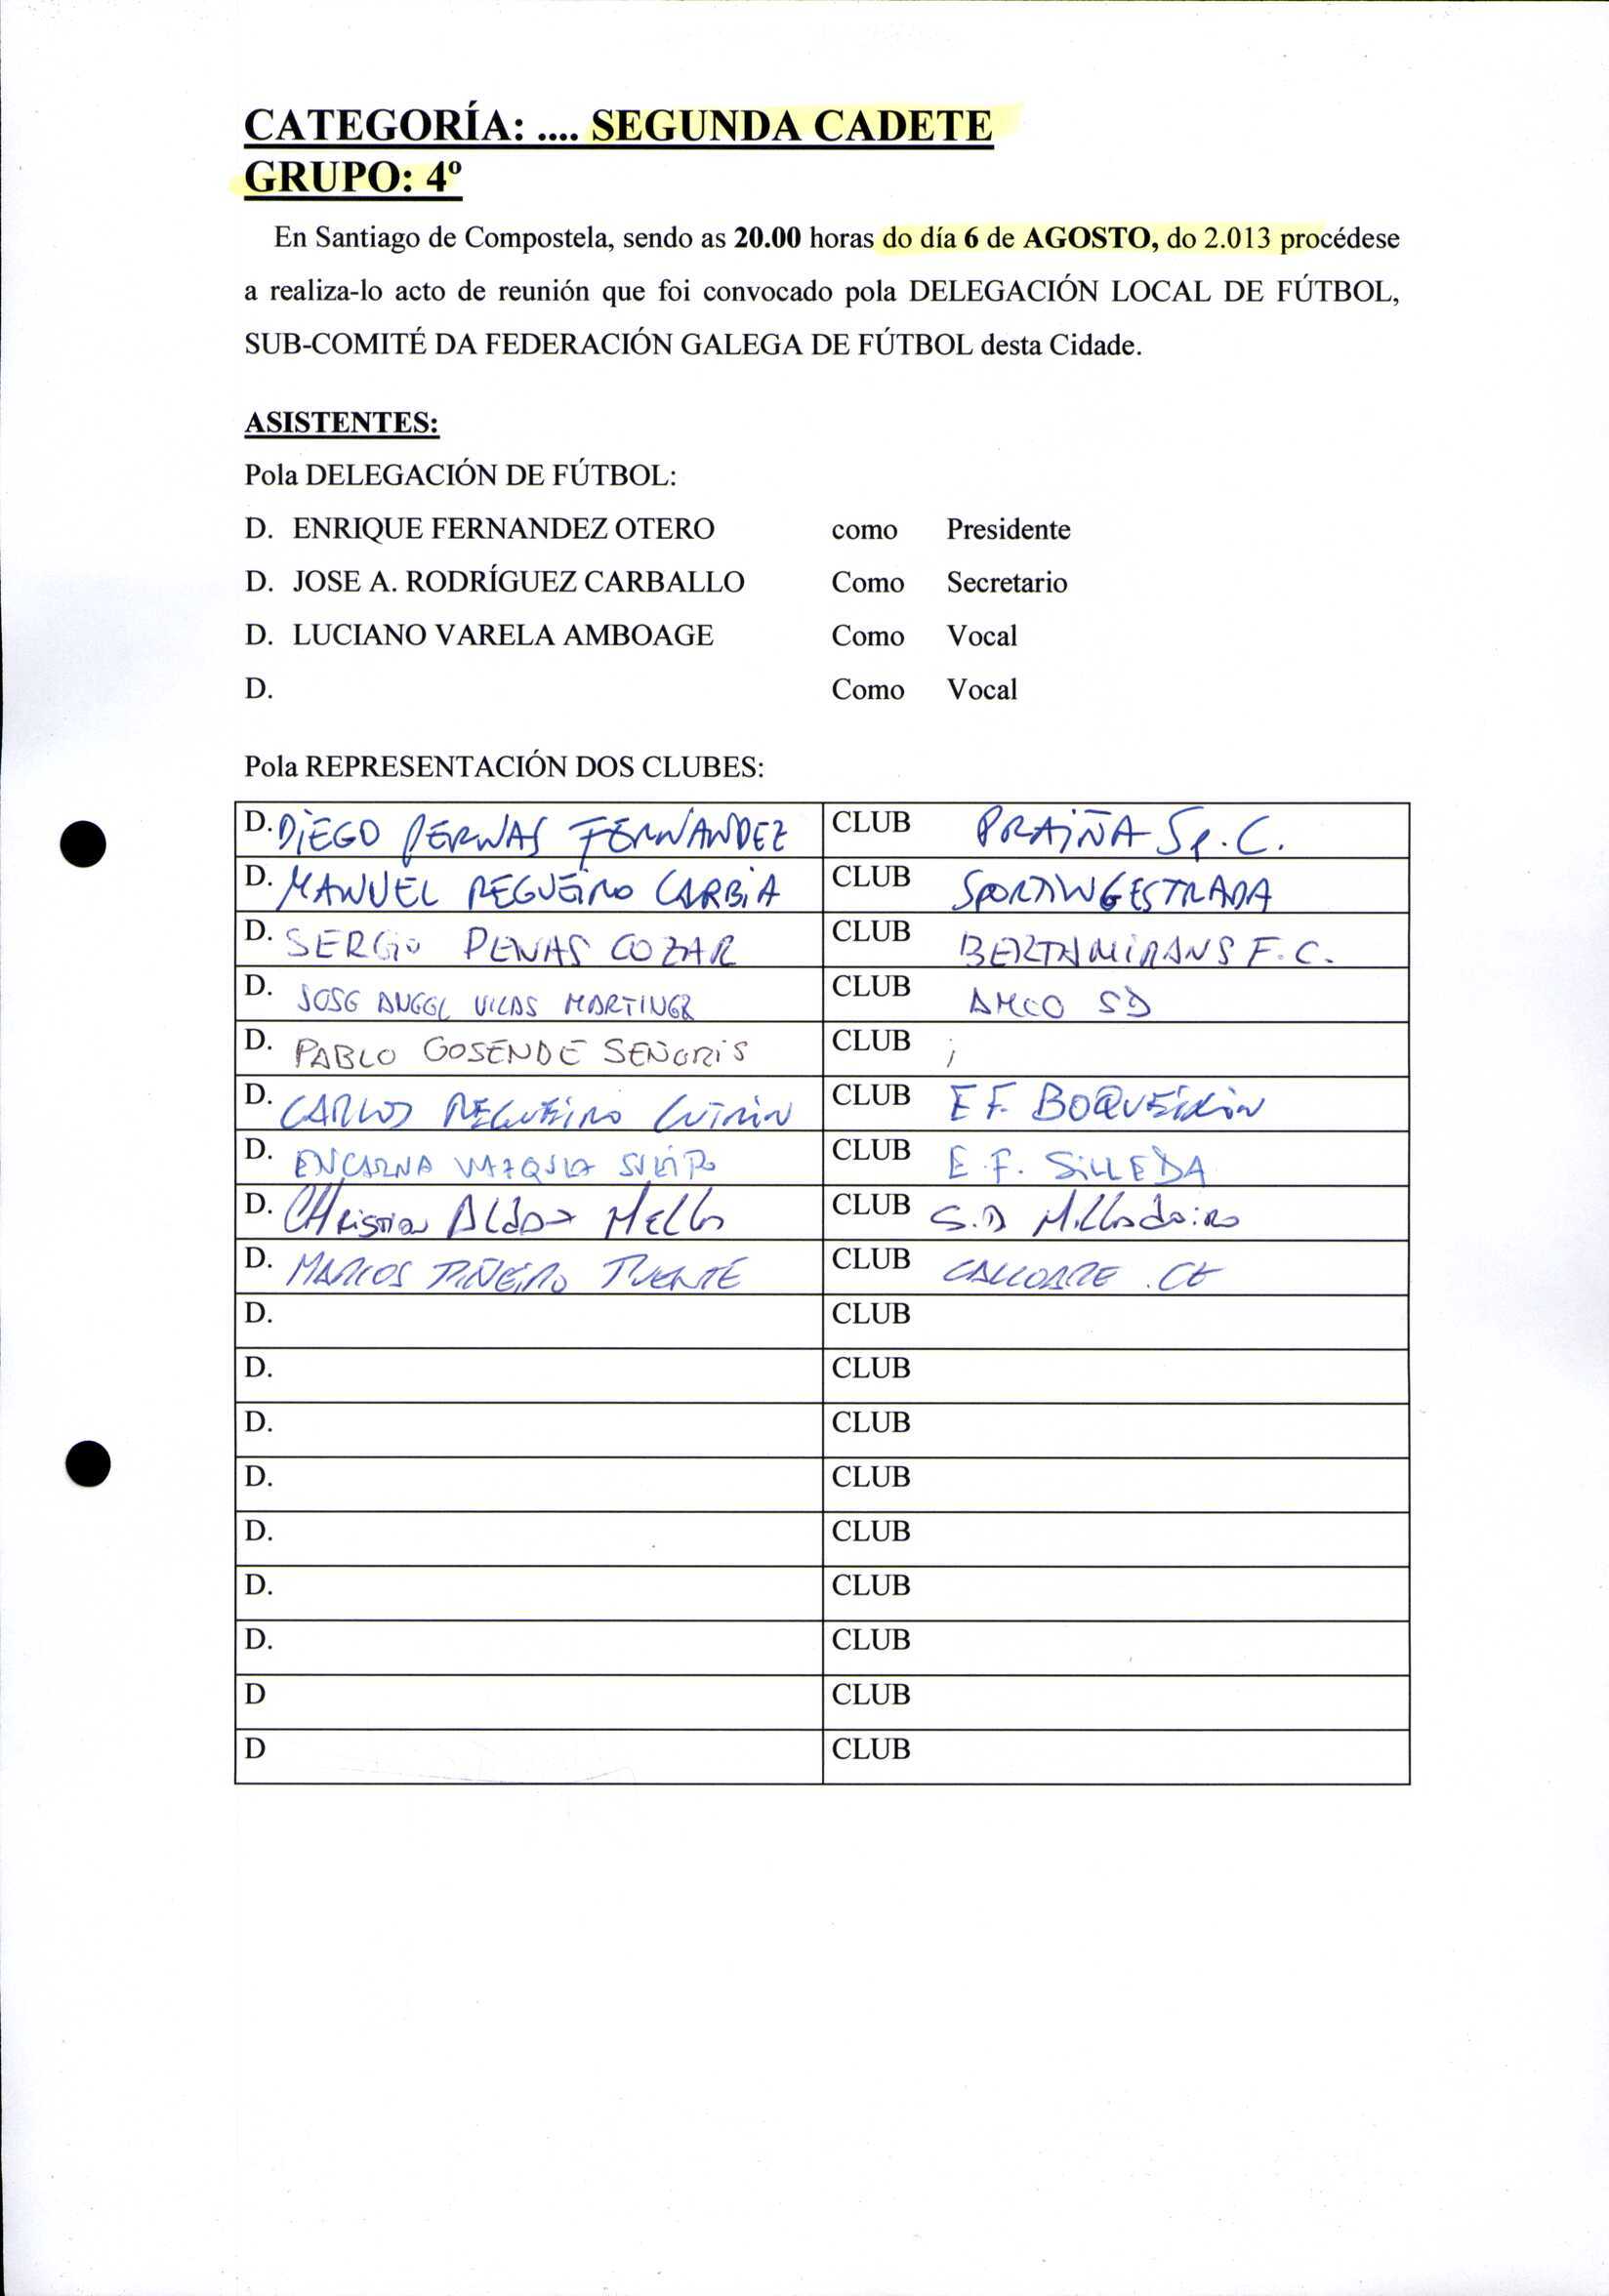 CATEGORÍA: .... SEGUNDA CADETE
GRUPO: 4º
En Santiago de Compostela, sendo as 20.00 horas do día 6 de AGOSTO, do 2.013 procédese
a realiza-lo acto de reunión que foi convocado pola DELEGACIÓN LOCAL DE FÚTBOL,
SUB-COMITÉ DA FEDERACIÓN GALEGA DE FÚTBOL desta Cidade.
ASISTENTES:
Pola DELEGACIÓN DE FÚTBOL:
D. ENRIQUE FERNANDEZ OTERO como Presidente
D. JOSE A. RODRÍGUEZ CARBALLO Como Secretario
D. LUCIANO VARELA AMBOAGE Como Vocal
D. Como Vocal
Pola REPRESENTACIÓN DOS CLUBES:
D. DIEGO PERNAS FERNANDEZ CLUB PRAIÑA Sp. C.
D. MANUEL REGUEIRO CARBIA CLUB SPORTING ESTRADA
D. SERGIO PENAS COZAR CLUB BERTAMIRANS F.C.
D. JOSE ANGEL VILAS MARTINEZ CLUB AMCO SD
D. PABLO GOSENDE SEÑORIS CLUB
D. CARLOS REGUEIRO CLUB EF. BOQUEIXÓN
D. ENCARNA CLUB E.F. SILLEDA
D. CHristian Aldao Mello CLUB S.D Milladoiro
D. MARCOS PIÑEIRO PUENTE CLUB CALLOBRE .CF
D. CLUB
D. CLUB
D. CLUB
D. CLUB
D. CLUB
D. CLUB
D. CLUB
D CLUB
D CLUB